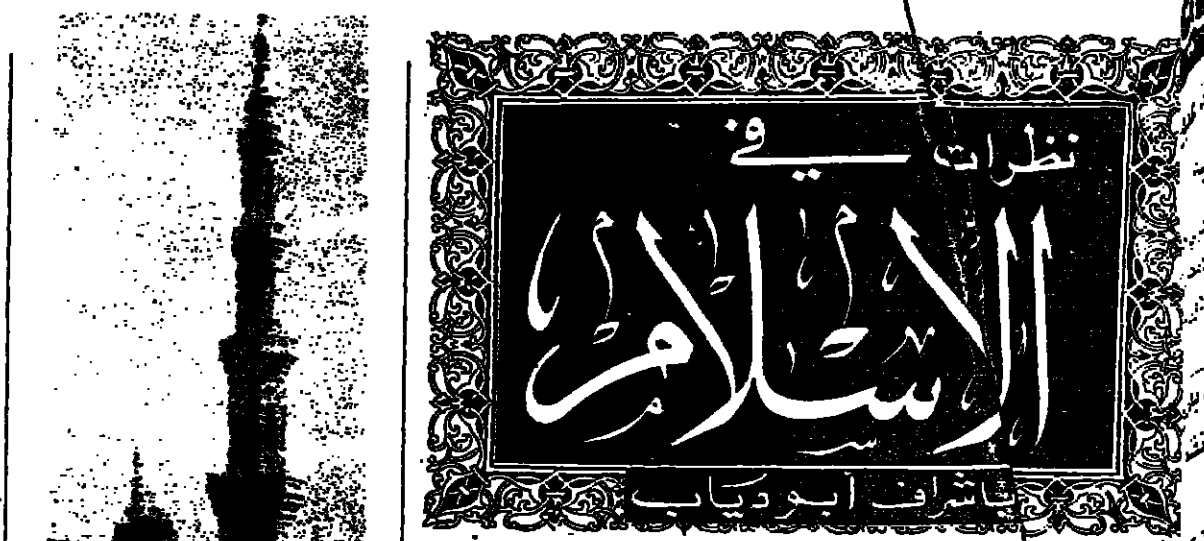 نظرات في
الاسلام
باشراف ابو دياب